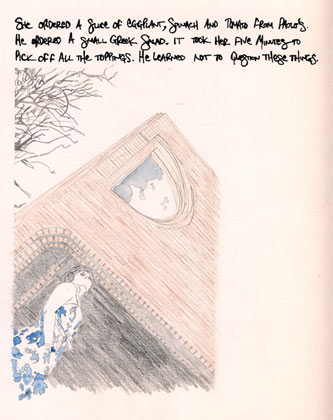 She ordered a slice of eggplant, spinach and tomato from Paolo's.
He ordered a small Greek salad. It took her five minutes to
pick off all the toppings. He learned not to question these things.